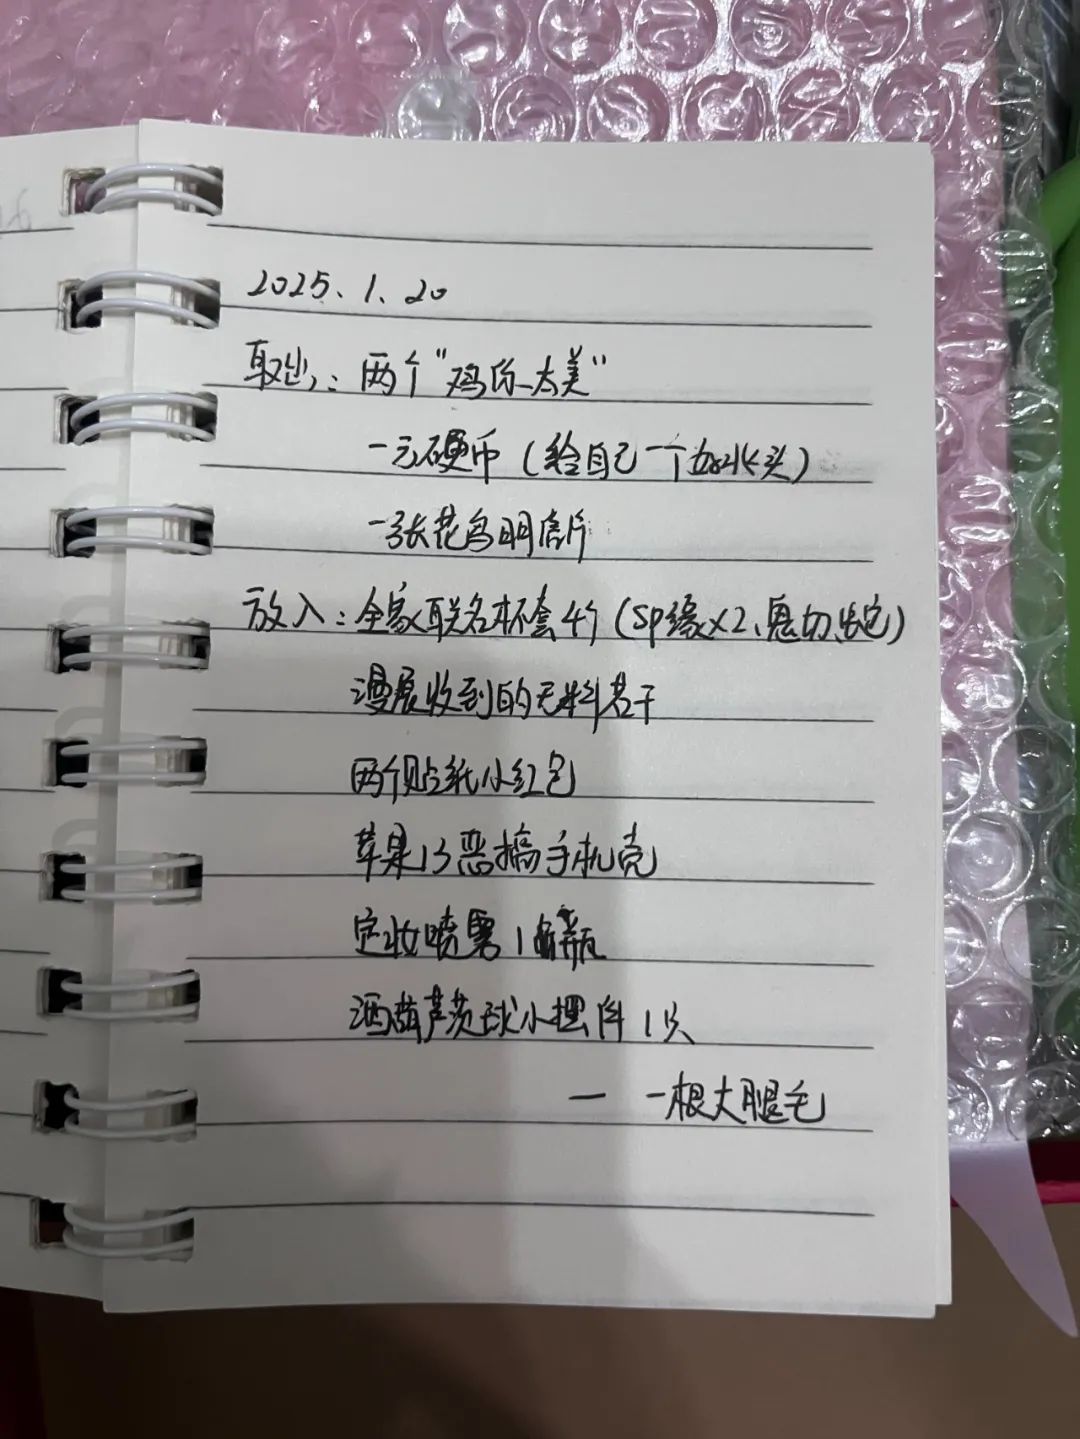 2025、1、20
取出：两个“鸡你太美”
一元硬币（给自己一个加水头）
一张花鸟明信片
放入：全家联名杯套4个（SP缘×2、
漫展收到的无料若干
两个贴纸小红包
苹果13恶搞手机壳
定妆喷雾1瓶
洒葫芦茨球小摆件1只
— 一根大腿毛